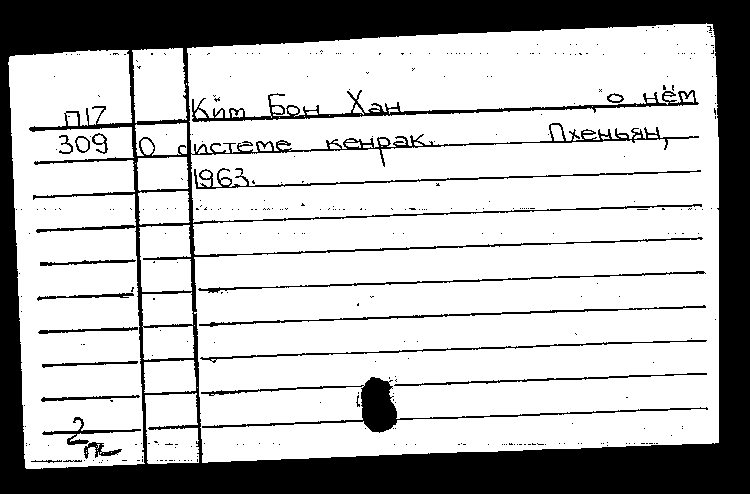 П17 Ким Бон Хан, о нём
309 О системе кенрак. Пхеньян,
1963.
2